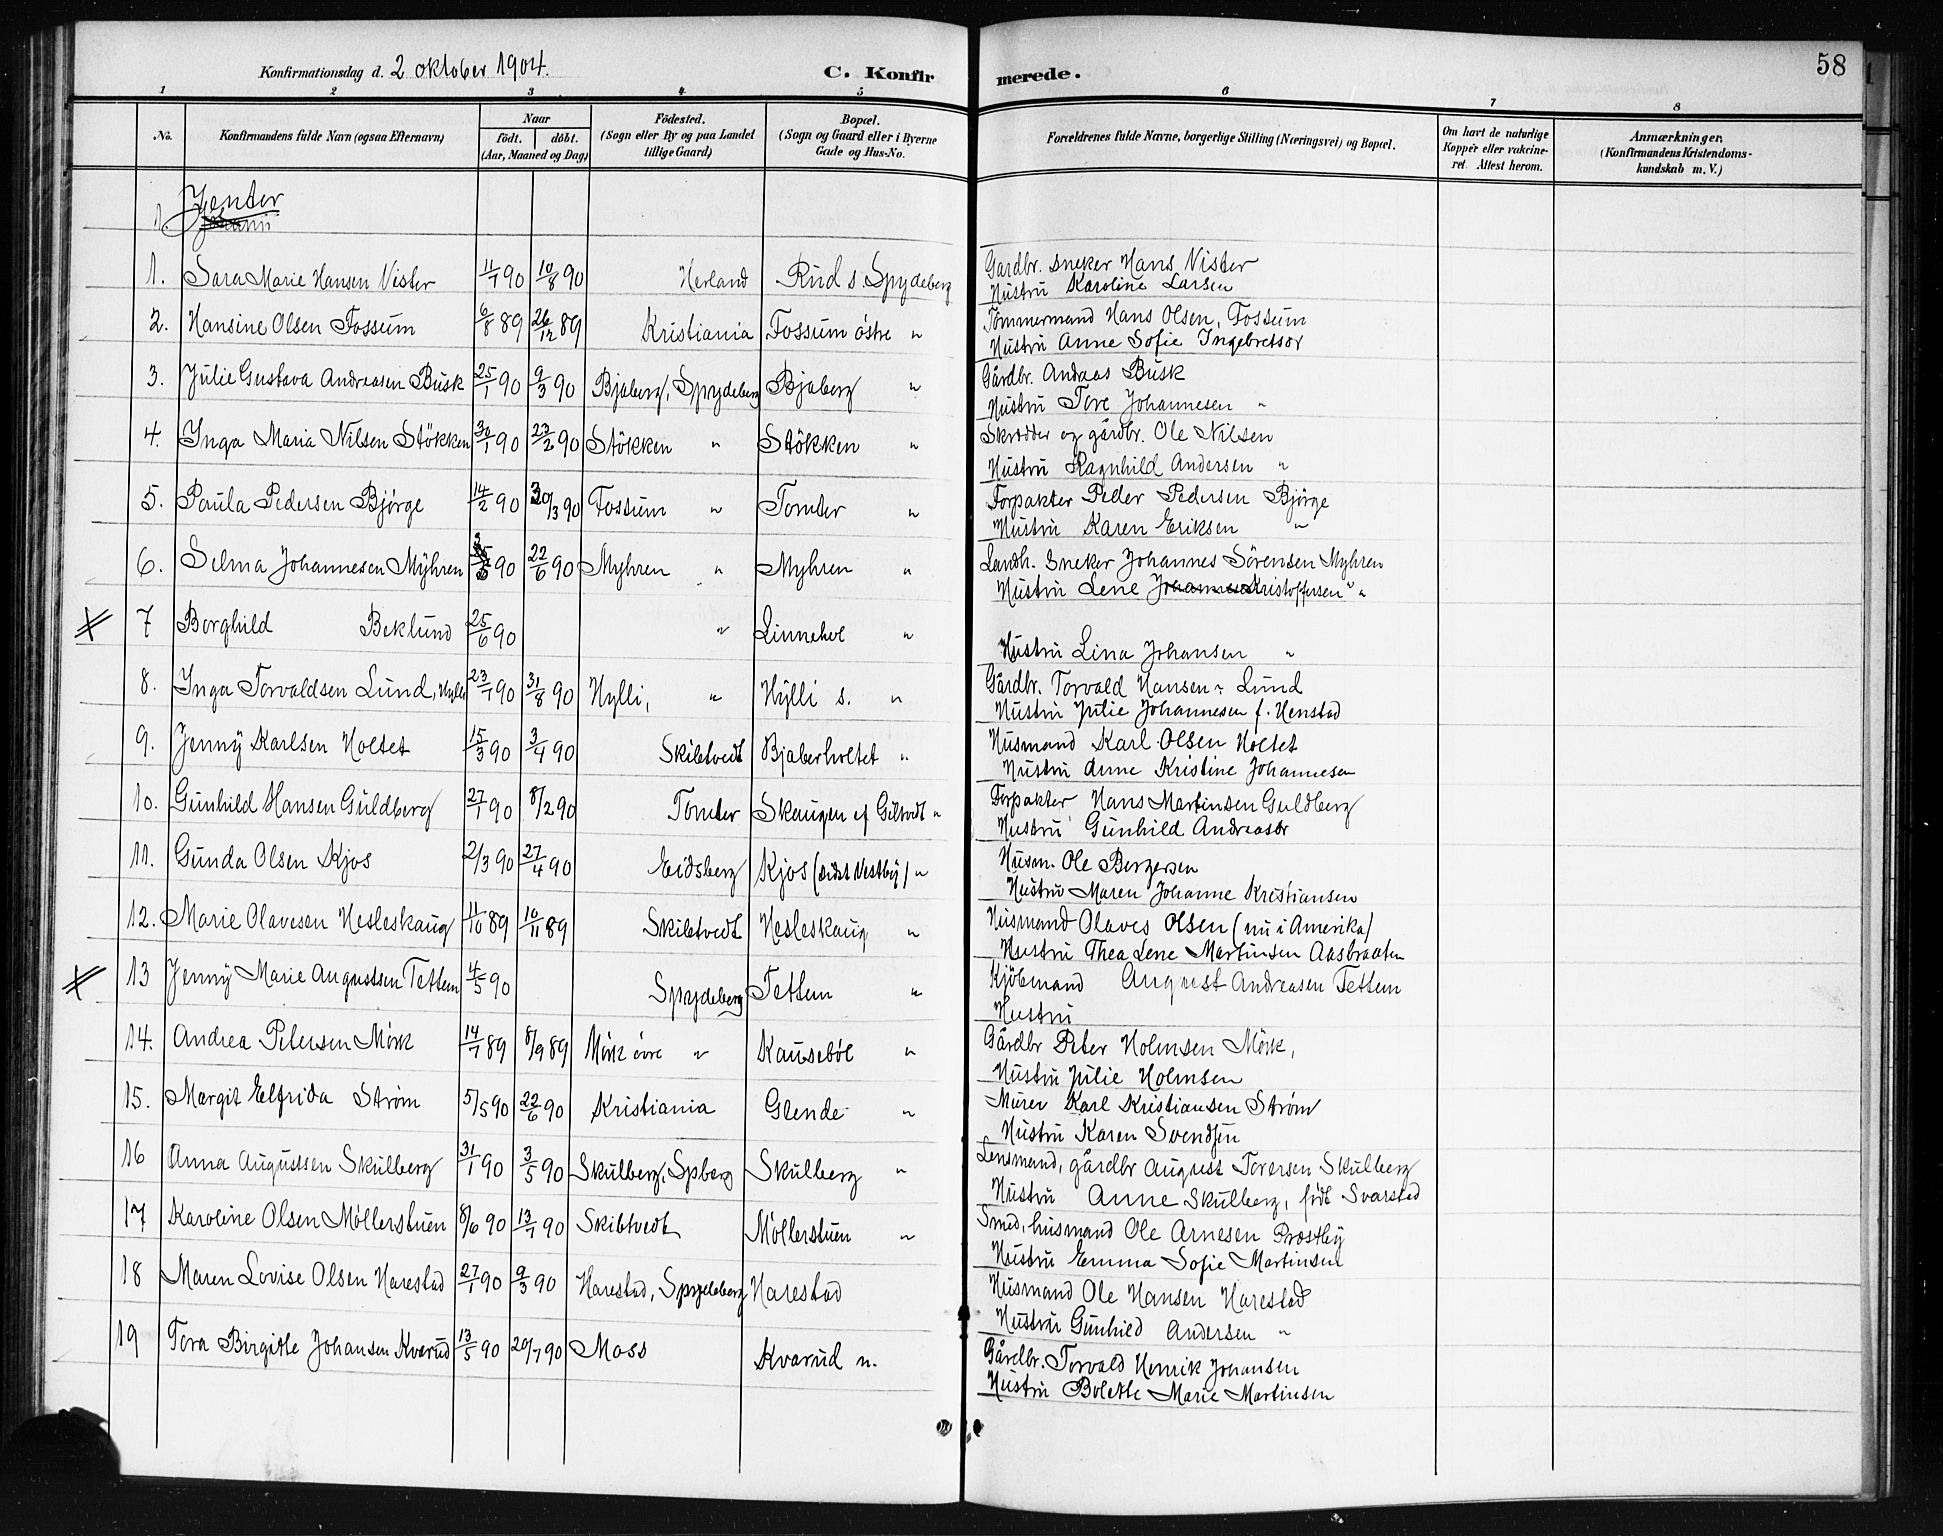 58
Konfirmationsdag d. 2 oktober 1904. C. Konfirmerede.
1 2 3 4 5 6 7 8
No. | Konfirmandens fulde Navn (ogsaa Efternavn) | Naar født. døbt. (Aar, Maaned og Dag) | Fødested. (Sogn eller By og paa Landet tillige Gaard) | Bopæl. (Sogn og Gaard eller i Byerne Gade og Hus-No. | Forældrenes fulde Navne, borgerlige Stilling (Næringsvei) og Bopæl. | Om havt de naturlige Kopper eller vakcineret. Attest herom. | Anmærkninger. (Konfirmandens Kristendomskundskab m. V.)
Jenter
1.
1. Sara Marie Hansen Vister 11/7 90 10/8 90 Herland Rud s. Spydeberg Gardbr. sneker Hans Vister
Hustru Karoline Larsen
2. Hansine Olsen Fossum 6/8 89 26/12 89 Kristiania Fossum östre " Tømmermand Hans Olsen, Fossum
Hustru Anne Sofie Ingebretsdr
3. Julie Gustava Andreasen Busk 25/1 90 9/3 90 Bjaberg, Spydeberg Bjaberg " Gårdbr. Andreas Busk
Hustru Tore Johannesen "
4. Inga Maria Nilsen Stökken 30/1 90 23/2 90 Stökken " Stökken " Skrædder og gårdbr. Ole Nilsen
Hustru Ragnhild Andersen "
5. Paula Pedersen Bjørge 14/2 90 30/3 90 Fossum " Tomter " Forpakter Peder Pedersen Bjørge
Hustru Karen Eriksen "
6. Selma Johannesen Myhren 90 22/6 90 Myhren " Myhren " Landh. Sneker Johannes Sörensen Myhren
Hustru Lene Kristoffersen "
7 Borghild Beklund 25/6 90 " Linnehol " Hustru Lina Johansen "
8. Inga Torvaldsen Lund, Hylli 23/7 90 31/8 90 Hylli, " Hylli s. " Gårdbr. Torvald Hansen Lund
Hustru Julie Johannesen f. Henstad
9. Jenny Karlsen Holtet 15/3 90 3/4 90 Skibtvedt Bjaberholtet " Husmand Karl Olsen Holtet
Hustru Anne Kristine Johannesen
10. Gunhild Hansen Guldberg 27/1 90 8/2 90 Tomter Skaugen af Giltvedt " Forpakter Hans Martinsen Guldberg
Hustru Gunhild Andreasdr
11. Gunda Olsen Kjos 2/3 90 27/4 90 Eidsberg Kjos ( Vestby) " Husm. Ole Borgersen
Hustru Maren Johanne Kristiansen
12. Marie Olavesen Hesleskaug 11/10 89 10/11 89 Skibtvedt Hesleskaug " Husmand Olaves Olsen (nu i Amerika)
Hustru Thea Lene Martinsen Aasbraaten
13 Jenny Marie Augustsen Tettem 4/5 90 Spydeberg Tettem " Kjøbmand August Andreasen Tettem
Hustru
14. Andrea Petersen Mörk 14/7 89 8/9 89 Mörk övre " Kauseböl " Gårdbr Peter Holmsen Mörk,
Hustru Julie Holmsen
15. Margit Elfrida Strøm 5/5 90 22/6 90 Kristiania Glende " Murer Karl Kristiansen Strøm
Hustru Karen Svendsen
16 Anna Augustsen Skulberg 31/1 90 3/5 90 Skulberg, Spberg Skulberg " Lensmand, gårdbr August Torersen Skulberg
Hustru Anne Skulberg, født Svarstad
17 Karoline Olsen Möllerstuen 8/6 90 13/7 90 Skibtvedt Möllerstuen " Smed, husmand Ole Arnesen Præstby
Hustru Emma Sofie Martinsen
18 Maren Lovise Olsen Harestad 27/1 90 9/3 90 Harestad, Spydeberg Harestad Husmand Ole Hansen Harestad
Hustru Gunhild Andersen "
19 Tora Birgitte Johansen Kvarud 13/5 90 20/7 90 Moss Kvarud n. Gårdbr. Torvald Henrik Johansen
Hustru Bolette Marie Martinsen